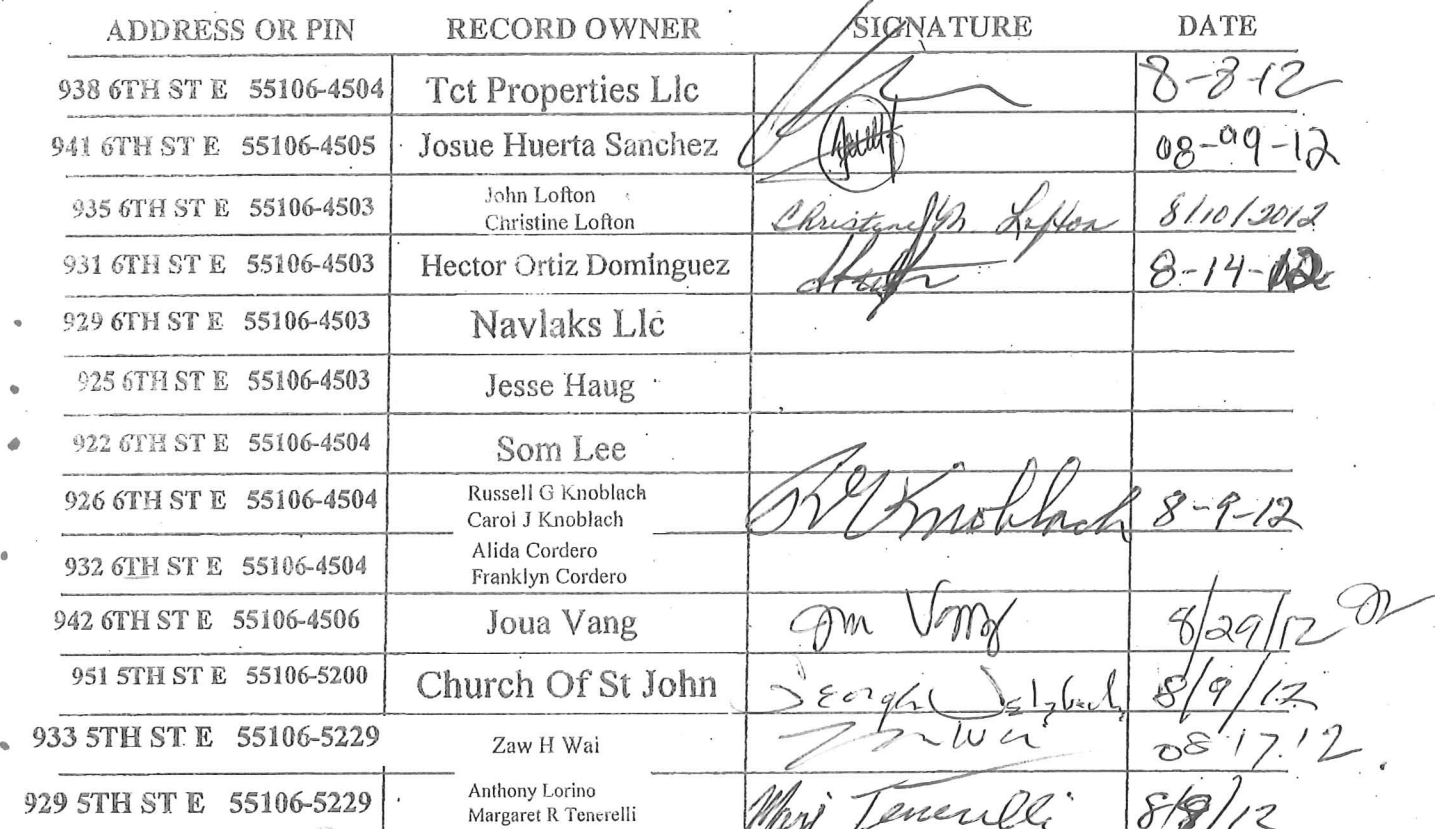 ADDRESS OR PIN RECORD OWNER SIGNATURE DATE
938 6TH ST E 55106-4504 Tct Properties Llc 8-8-12
941 6TH ST E 55106-4505 Josue Huerta Sanchez 08-09-12
935 6TH ST E 55106-4503 John Lofton
Christine Lofton Christine M Lofton 8/10/2012
931 6TH ST E 55106-4503 Hector Ortiz Dominguez 8-14-12
929 6TH ST E 55106-4503 Navlaks Llc
925 6TH ST E 55106-4503 Jesse Haug
922 6TH ST E 55106-4504 Som Lee
926 6TH ST E 55106-4504 Russell G Knoblach
Carol J Knoblach RG Knoblach 8-9-12
932 6TH ST E 55106-4504 Alida Cordero
Franklyn Cordero
942 6TH ST E 55106-4506 Joua Vang Vang 8/29/12
951 5TH ST E 55106-5200 Church Of St John 8/9/12
933 5TH ST E 55106-5229 Zaw H Wai Wai 08.17.12
929 5TH ST E 55106-5229 Anthony Lorino
Margaret R Tenerelli Tenerelli 8/8/12